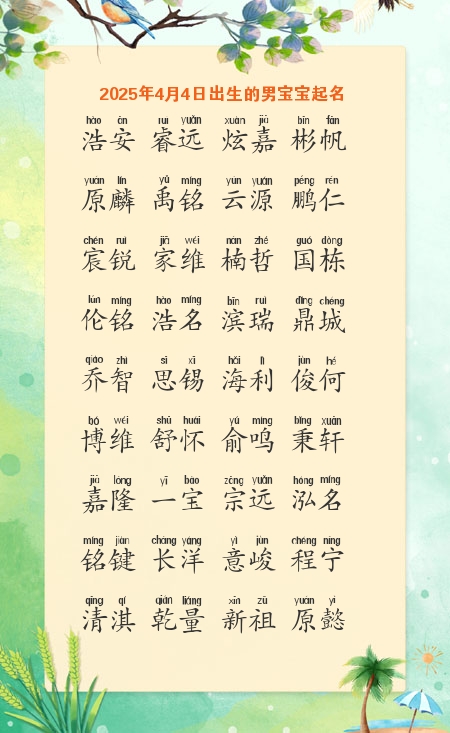 2025年4月4日出生的男宝宝起名
hào ān ruì yuǎn xuàn jiā bīn fān
浩安 睿远 炫嘉 彬帆
yuán lín yǔ míng yún yuán péng rén
原麟 禹铭 云源 鹏仁
chén ruì jiā wéi nán zhé guó dòng
宸锐 家维 楠哲 国栋
lún míng hào míng bīn ruì dǐng chéng
伦铭 浩名 滨瑞 鼎城
qiáo zhì sī xī hǎi lì jùn hé
乔智 思锡 海利 俊何
bó wéi shū huái yú míng bǐng xuān
博维 舒怀 俞鸣 秉轩
jiā lóng yī bǎo zōng yuǎn hóng míng
嘉隆 一宝 宗远 泓名
míng jiàn cháng yáng yì jùn chéng níng
铭键 长洋 意峻 程宁
qīng qí qián liàng xīn zǔ yuán yì
清淇 乾量 新祖 原懿